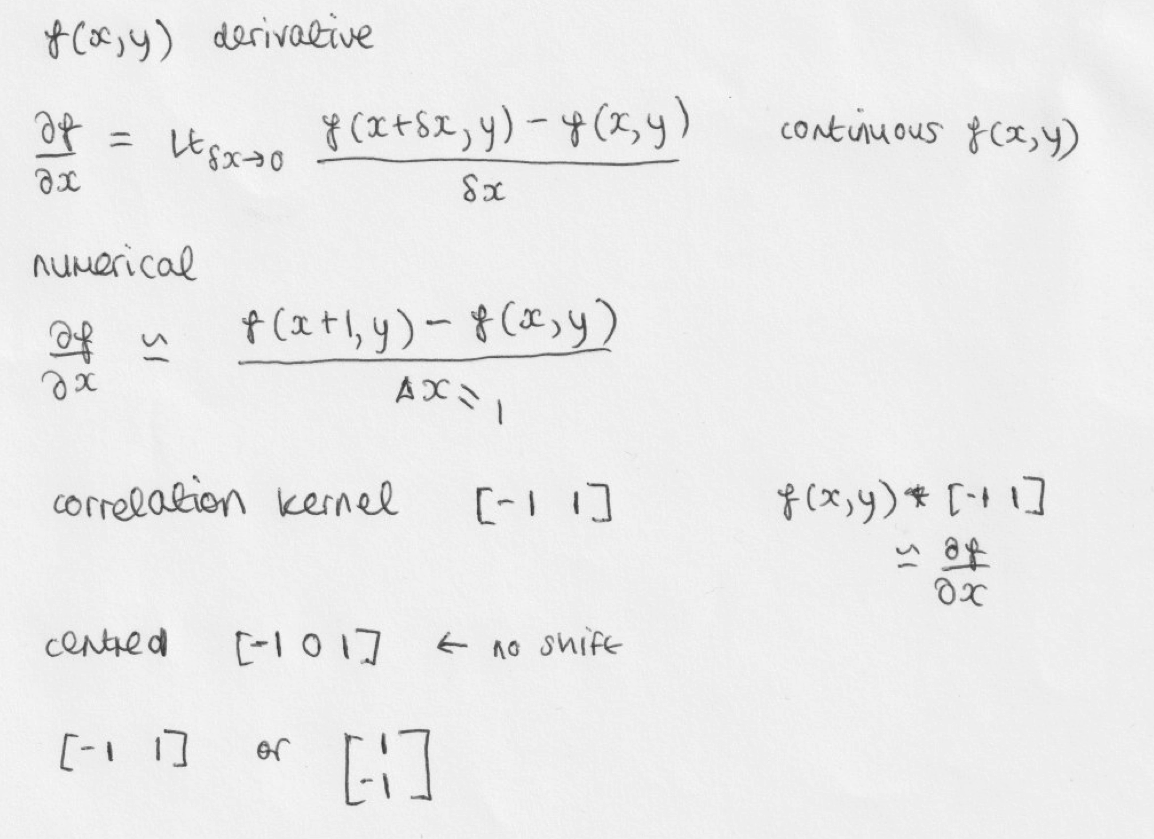 f(x,y) derivative
∂f/∂x = Lt δx→0 (f(x+δx, y) - f(x,y))/δx continuous f(x,y)
numerical
∂f/∂x ≃ (f(x+1,y) - f(x,y))/Δx = 1
correlation kernel [-1 1] f(x,y) * [-1 1]
≃ ∂f/∂x
centred [-1 0 1] ← no shift
[-1 1] or [1
-1]